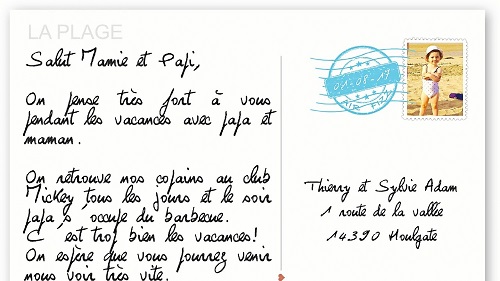 LA PLAGE
Salut Mamie et Papi,
On pense très fort à vous
pendant les vacances avec papa et
maman.
On retrouve nos copains au club
Mickey tous les jours et le soir
papa s'occupe du barbecue.
C'est trop bien les vacances!
On espère que vous pourrez venir
nous voir très vite.
01-08-17
AIR
Thierry et Sylvie Adam
1 route de la vallée
14390 Houlgate